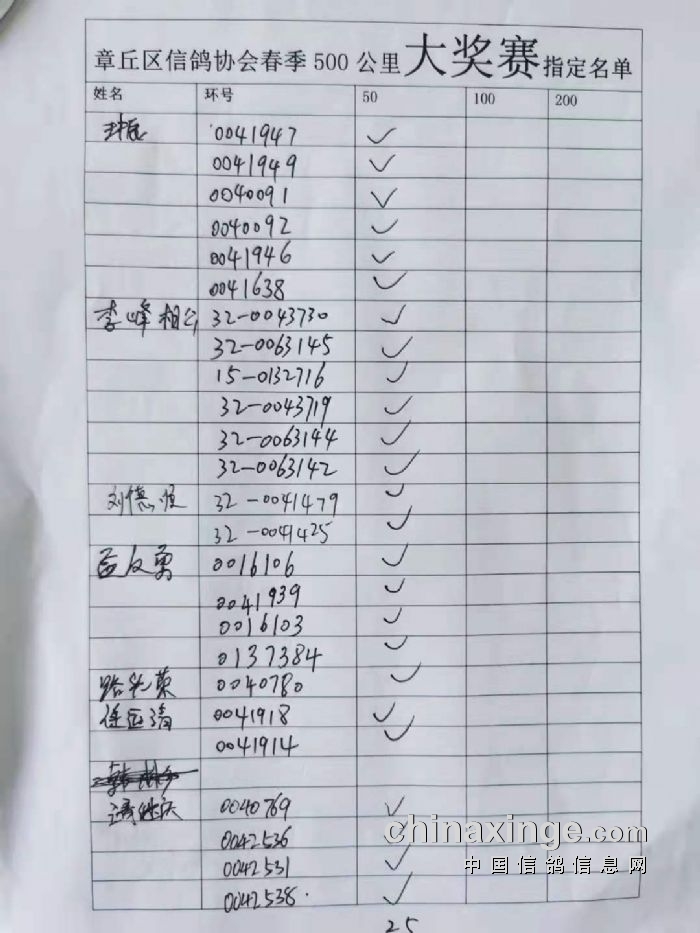 章丘区信鸽协会春季500公里大奖赛指定名单
姓名 环号 50 100 200
0041947 ✓
0041949 ✓
0040091 ✓
0040092 ✓
0041946 ✓
0041638 ✓
李峰 相公 32-0043730 ✓
32-0063145 ✓
15-0132716 ✓
32-0043719 ✓
32-0063144 ✓
32-0063142 ✓
刘德恒 32-0041479 ✓
32-0041425 ✓
孟友勇 0016106 ✓
0041939 ✓
0016103 ✓
0137384 ✓
路光荣 0040780 ✓
徐臣清 0041918 ✓
0041914 ✓
0040769 ✓
0042536
0042531 ✓
0042538. ✓
25
chinaxinge.com
中国信鸽信息网